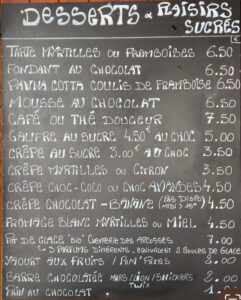 DESSERTS & PLAISIRS
SUCRÉS
TARTE MYRTILLES OU FRAMBOISES 6.50
FONDANT AU CHOCOLAT 6.50
PANNA COTTA COULIS DE FRAMBOISE 6.50
MOUSSE AU CHOCOLAT 6.50
CAFÉ OU THÉ DOUCEUR 7.50
GAUFRE AU SUCRE 4.50€ AU CHOC 5.00
CRÊPE AU SUCRE 3.00€ AU CHOC 3.50
CRÊPE MYRTILLES OU CITRON 3.50
CRÊPE CHOC-COCO OU CHOC AMANDES 4.50
CRÊPE CHOCOLAT - BANANE (PAS DISPO 4.50
FROMAGE BLANC MYRTILLES OU MIEL 4.50
POT DE GLACE "BIO" 7.00
3 PARFUMS DIFFÉRENTS, ÉQUIVALENT 2 BOULES DE GLACE
YAOURT AUX FRUITS / POM'POTES 2.00
BARRE CHOCOLATÉE MARS/LION/SNICKERS 2.00
TWIX
PAIN AU CHOCOLAT 1